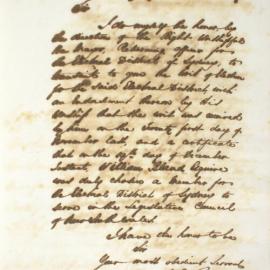 Sir
I do myself the honor by
the direction of the Right Worshipful
the Mayor, Returning Officer for
the Electoral District of Sydney, to
transmit to you the Writ of Election
for the said Electoral District with
an Endorsement thereon by His
Worship that the writ was received
by him on the Twenty first day of
November last, and a certificate
that on the day of December
Instant, William Esquire
was duly chosen a Member for
the Electoral District of Sydney to
serve in the Legislative Council
of New South Wales.
I have the honor to be
Sir
Your most obedient Servant